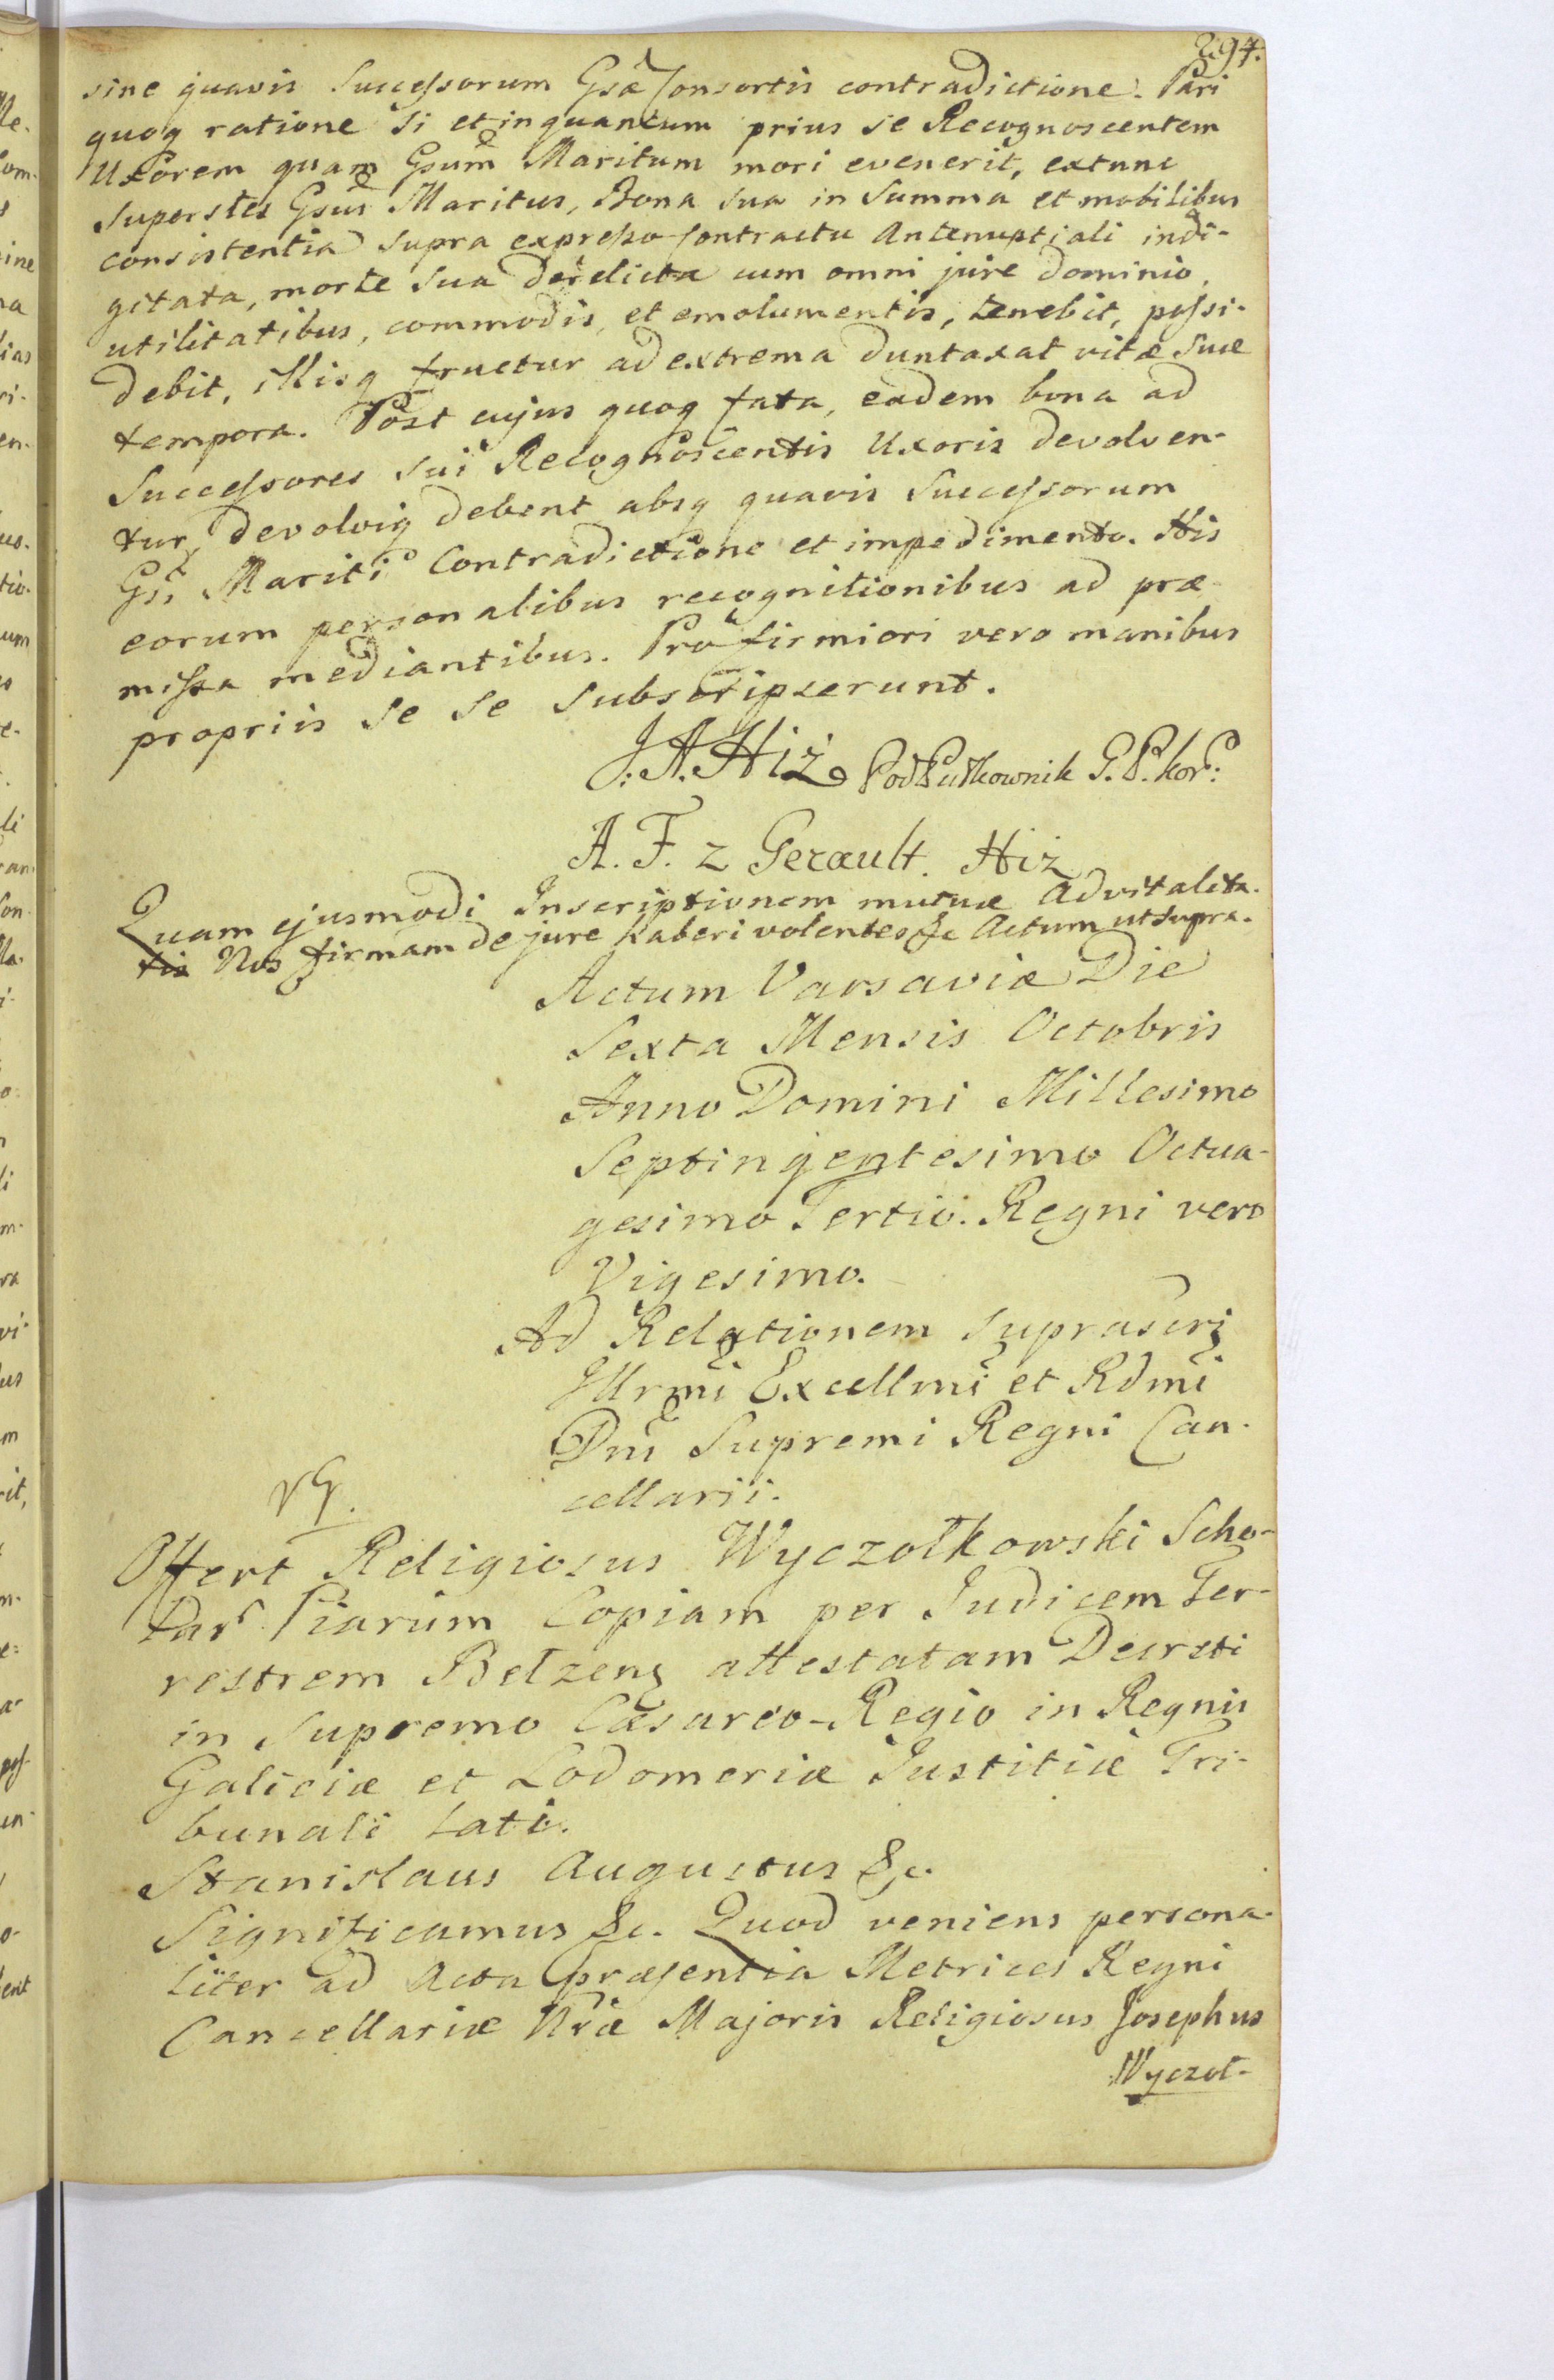 294.
sine quavis Successorum Gsæ Consortis contradictione. Pari
quoq ratione si et inquantum prius se Recognoscentem
Uxorem quam Gsum Maritum mori evenerit, extunc
superstes Gsus Maritus, Bona sua in Summa et mobilibus
consistentia supra expresso Contractu Antenuptiali indi-
gitata, morte sua derelicta cum omni jure dominio,
utilitatibus, commodis, et emolumentis, tenebit, possi-
debit, illisq fruetur ad extrema duntaxat vitæ suæ
tempora. Post cujus quoq fata, eadem bona ad
Successores sui Recognoscentis Uxoris devolven-
tur, devolviq debent absq quavis Successorum
Gsi Mariti Contradictione et impedimento. His
eorum personalibus recognitionibus ad præ
missa mediantibus. Pro firmiori vero manibus
propriis se se subscripserunt.
J. A. Hiż PodPułkownik G. P. Kor:
A. F. z Gerault Hiż
Quam ejusmodi Inscriptionem mutuæ Advitalita-
tis Nos firmam de jure haberi volentes &c Actum ut supra.
Actum Varsaviæ Die
Sexta Mensis Octobris
Anno Domini Millesimo
Septingentesimo Octua-
gesimo Tertio. Regni vero
Vigesimo.
Ad Relationem suprascri
Illrmi Excellmi et Rdmi
Dni Supremi Regni Can-
cellarii.
Offert Religiosus Wyczołkowski Scho-
lar Piarum Copiam per Judicem Ter-
restrem Belzens attestatam Decreti
in Supremo Cæsareo-Regio in Regnis
Galiciæ et Lodomeriæ Justitiæ Tri-
bunali lati.
Stanislaus Augustus &c.
Significamus &c. Quod veniens persona-
liter ad Acta præsentia Metrices Regni
Cancellariæ Nræ Majoris Religiosus Josephus
Wyczoł-